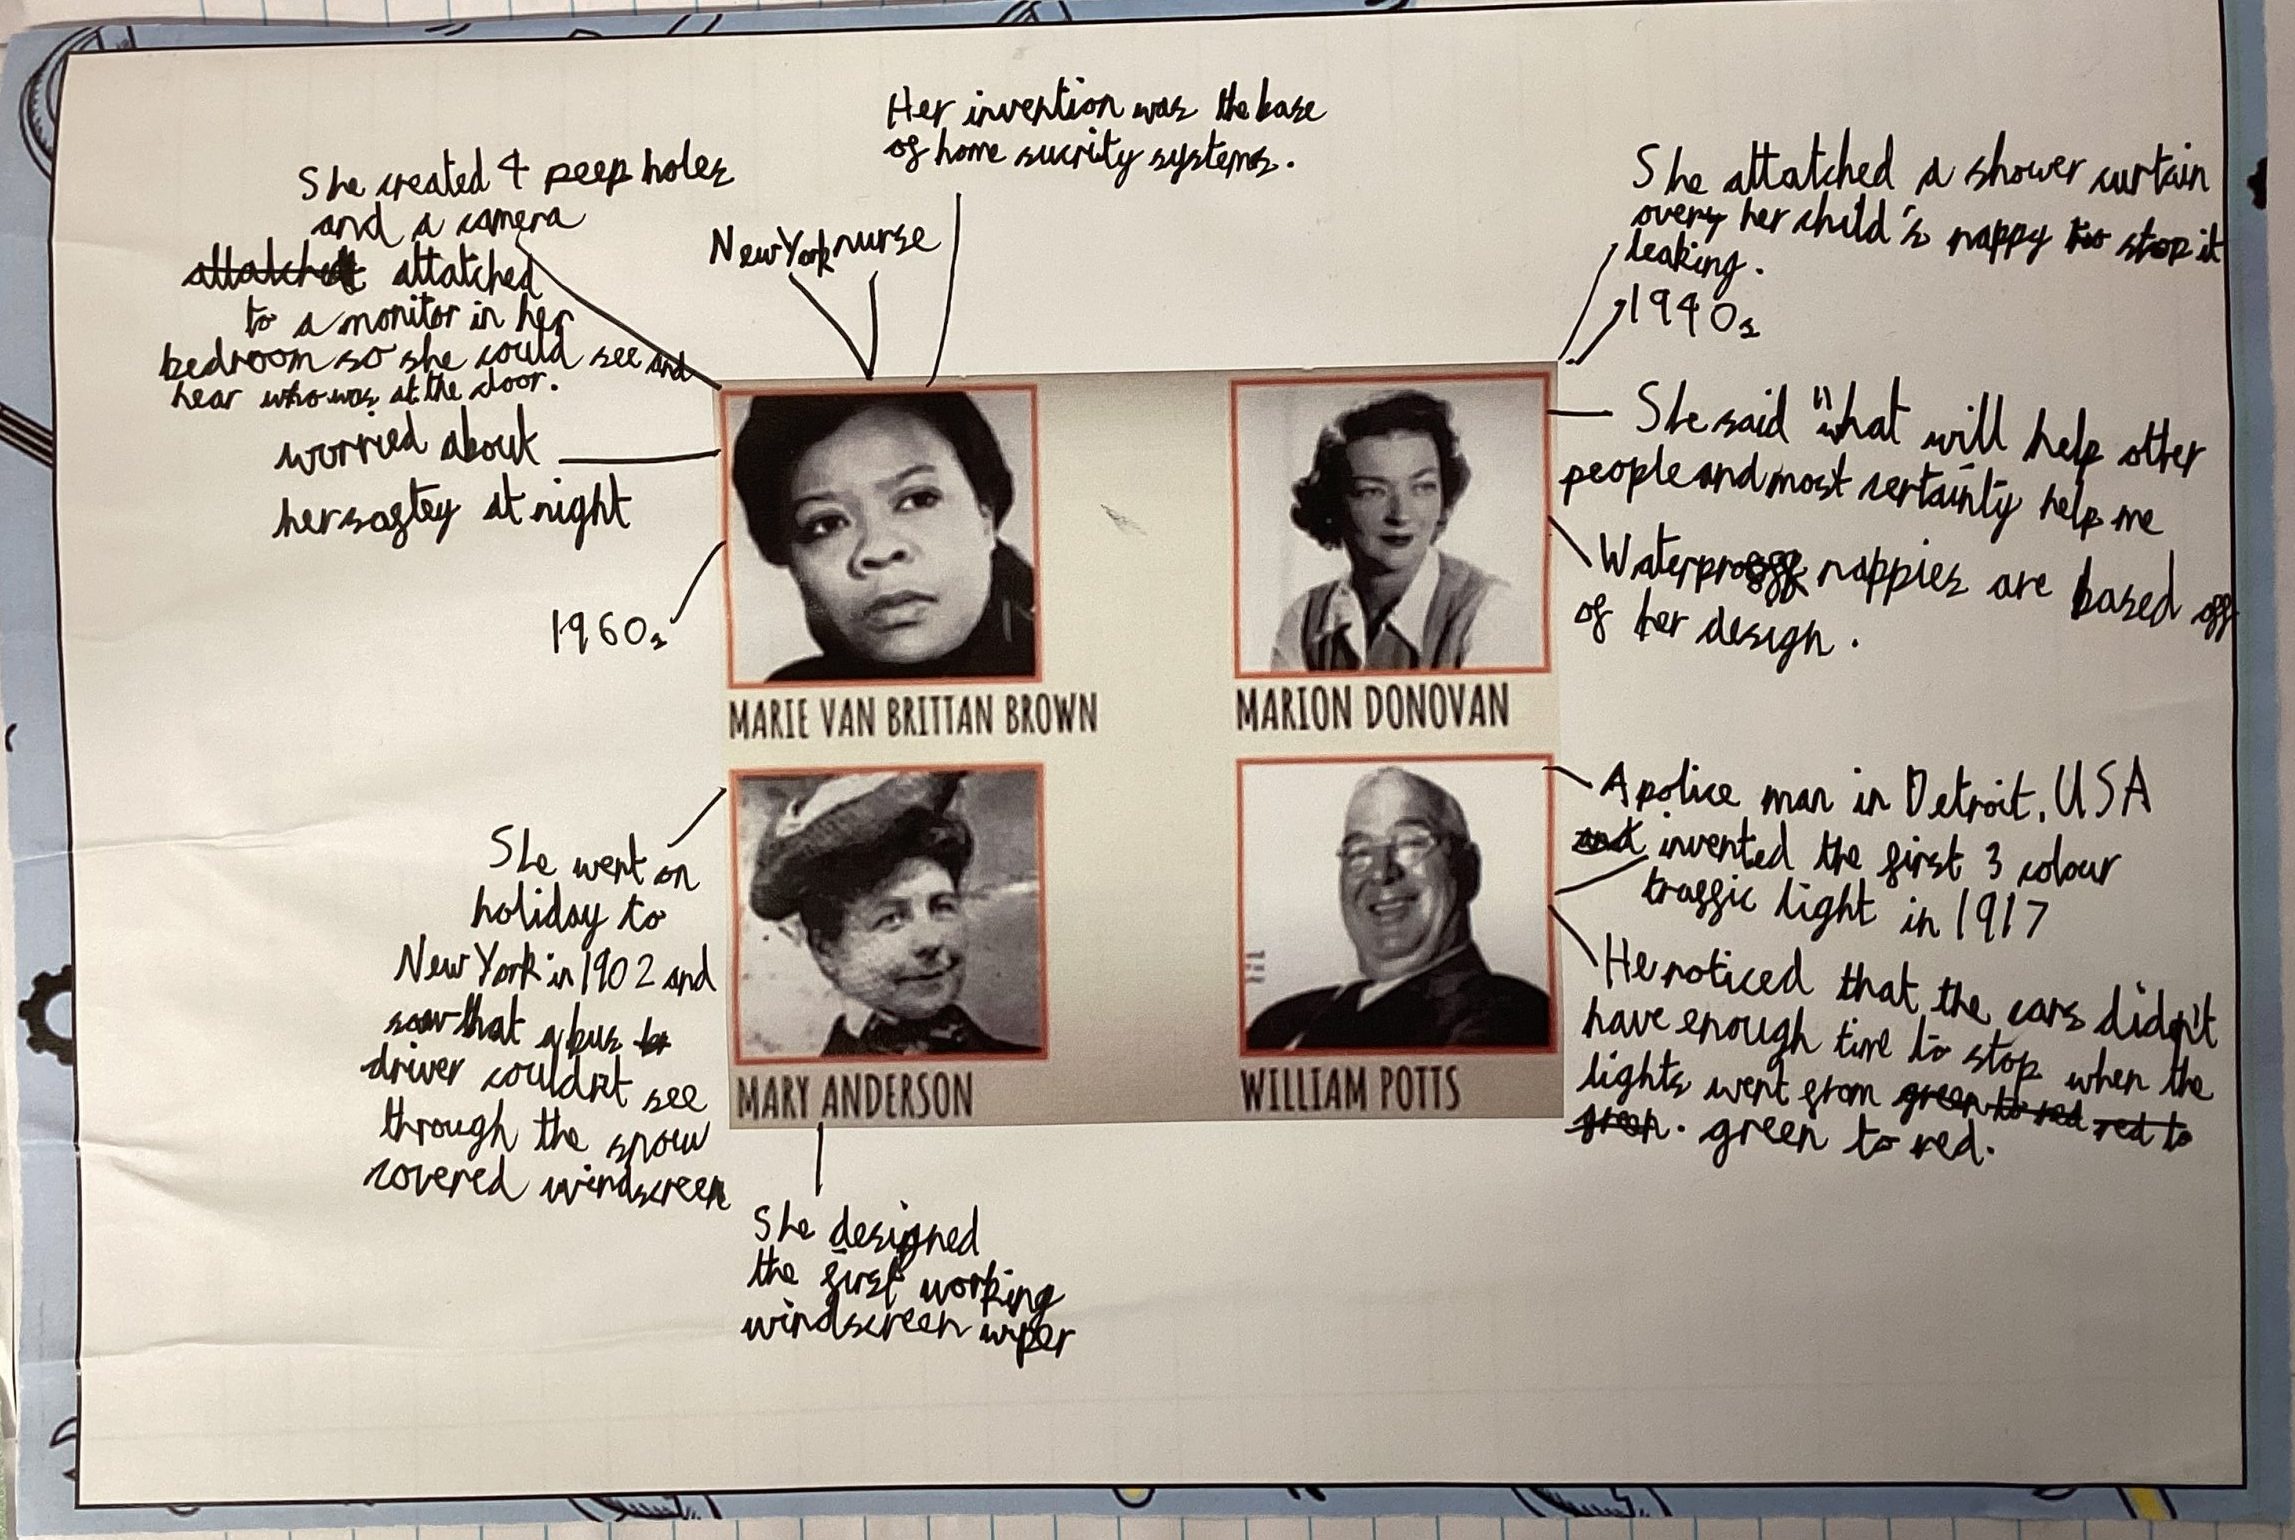 Her invention was the base
of home sucrity systems.
She created 4 peep holes
and a camera
attatched attatched
to a monitor in her
bedroom so she could see and
hear who was at the door.
New York nurse
worried about
her saftey at night
1960s
MARIE VAN BRITTAN BROWN
She attatched a shower curtain
over her child's nappy to stop it
leaking.
1940s
She said "what will help other
people and most certainly help me
Waterproof nappies are based off
of her design.
MARION DONOVAN
She went on
holiday to
New York in 1902 and
saw that a bus
driver couldn't see
through the snow
covered windscreen
MARY ANDERSON
She designed
the first working
windscreen wiper
A police man in Detroit, USA
and invented the first 3 colour
traffic light in 1917
He noticed that the cars didn't
have enough time to stop when the
lights went from green to red red to
green. green to red.
WILLIAM POTTS